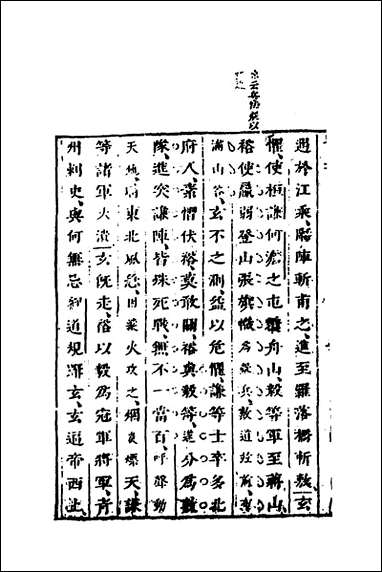 遇於江乘臨陣斬甫之進至羅落橋斬敷玄
懼使桓謙何澹之屯覆舟山毅等軍至蔣山
裕使羸弱登山張旗幟為疑兵數道並前布
滿山谷玄不之測益以危懼謙等士卒多北
府人素慴伏裕莫敢鬬裕與毅等進分為數
隊進突謙陣皆殊死戰無不一當百呼聲動
天地時東北風急因縱火攻之烟炎熛天謙
等諸軍大潰玄既走裕以毅為冠軍將軍青
州刺史與何無忌劉道規躡玄玄逼帝西上